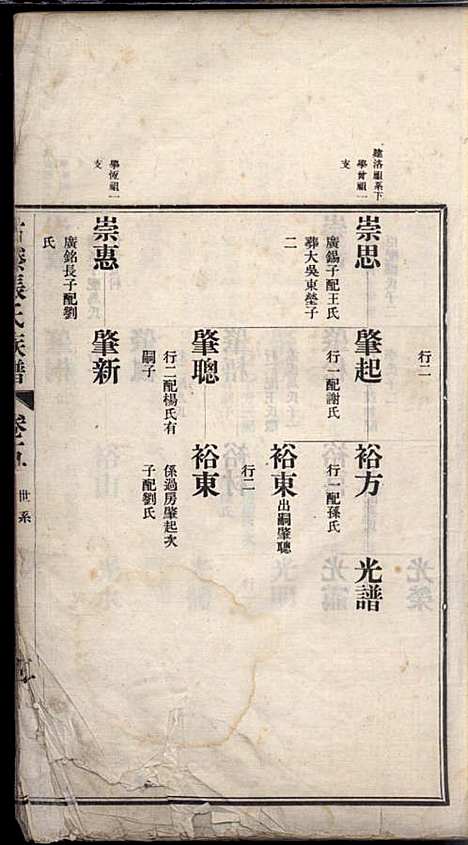 行二
建洛顯系下
學曾祖一
支
崇思
廣錫子配王氏
葬大吳東塋子
二
肇起
行一配謝氏
裕方
行一配孫氏
光譜
裕東出嗣肇聰
行二
肇聰
行二配楊氏有
嗣子
裕東
係過房肇起次
子配劉氏
學恆祖一
支
崇惠
廣銘長子配劉
氏
肇新
張氏族譜
世系